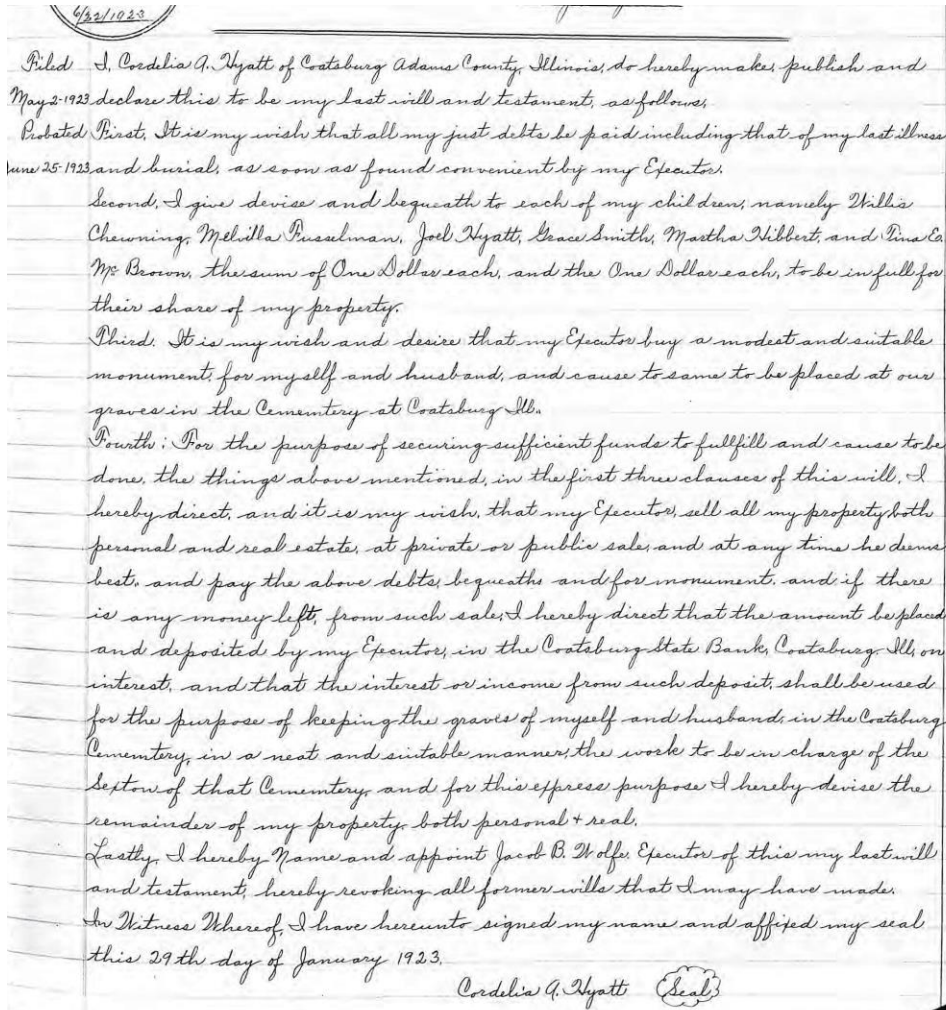 6/22/1923
Filed I, Cordelia A. Hyatt of Coatsburg Adams County, Illinois, do hereby make, publish and
May 2-1923 declare this to be my last will and testament, as follows,
Probated First, It is my wish that all my just debts be paid including that of my last illness
June 25-1923 and burial, as soon as found convenient by my Executor.
Second, I give devise and bequeath to each of my children, namely Willis
Chewning, Melvilla Fusselman, Joel Hyatt, Grace Smith, Martha Hibbert, and Tina Ev
Mc Brown, the sum of One Dollar each, and the One Dollar each, to be in full for
their share of my property.
Third. It is my wish and desire that my Executor buy a modest and suitable
monument, for myself and husband, and cause to same to be placed at our
graves in the Cementery at Coatsburg Ill.
Fourth: For the purpose of securing sufficient funds to fullfill and cause to be
done, the things above mentioned, in the first three clauses of this will, I
hereby direct, and it is my wish, that my Executor, sell all my property both
personal and real estate, at private or public sale, and at any time he deems
best. and pay the above debts, bequeaths and for monument, and if there
is any money left, from such sale, I hereby direct that the amount be placed
and deposited by my Executor, in the Coatsburg State Bank, Coatsburg. Ill, on
interest, and that the interest or income from such deposit, shall be used
for the purpose of keeping the graves of myself and husband, in the Coatsburg
Cementery, in a neat and suitable manner, the work to be in charge of the
Sexton of that Cementery, and for this express purpose I hereby devise the
remainder of my property, both personal + real.
Lastly, I hereby Name and appoint Jacob B. Wolfe, Executor of this my last will
and testament, hereby revoking all former wills that I may have made.
In Witness Whereof, I have hereunto signed my name and affixed my seal
this 29th day of January 1923.
Cordelia A. Hyatt (Seal)